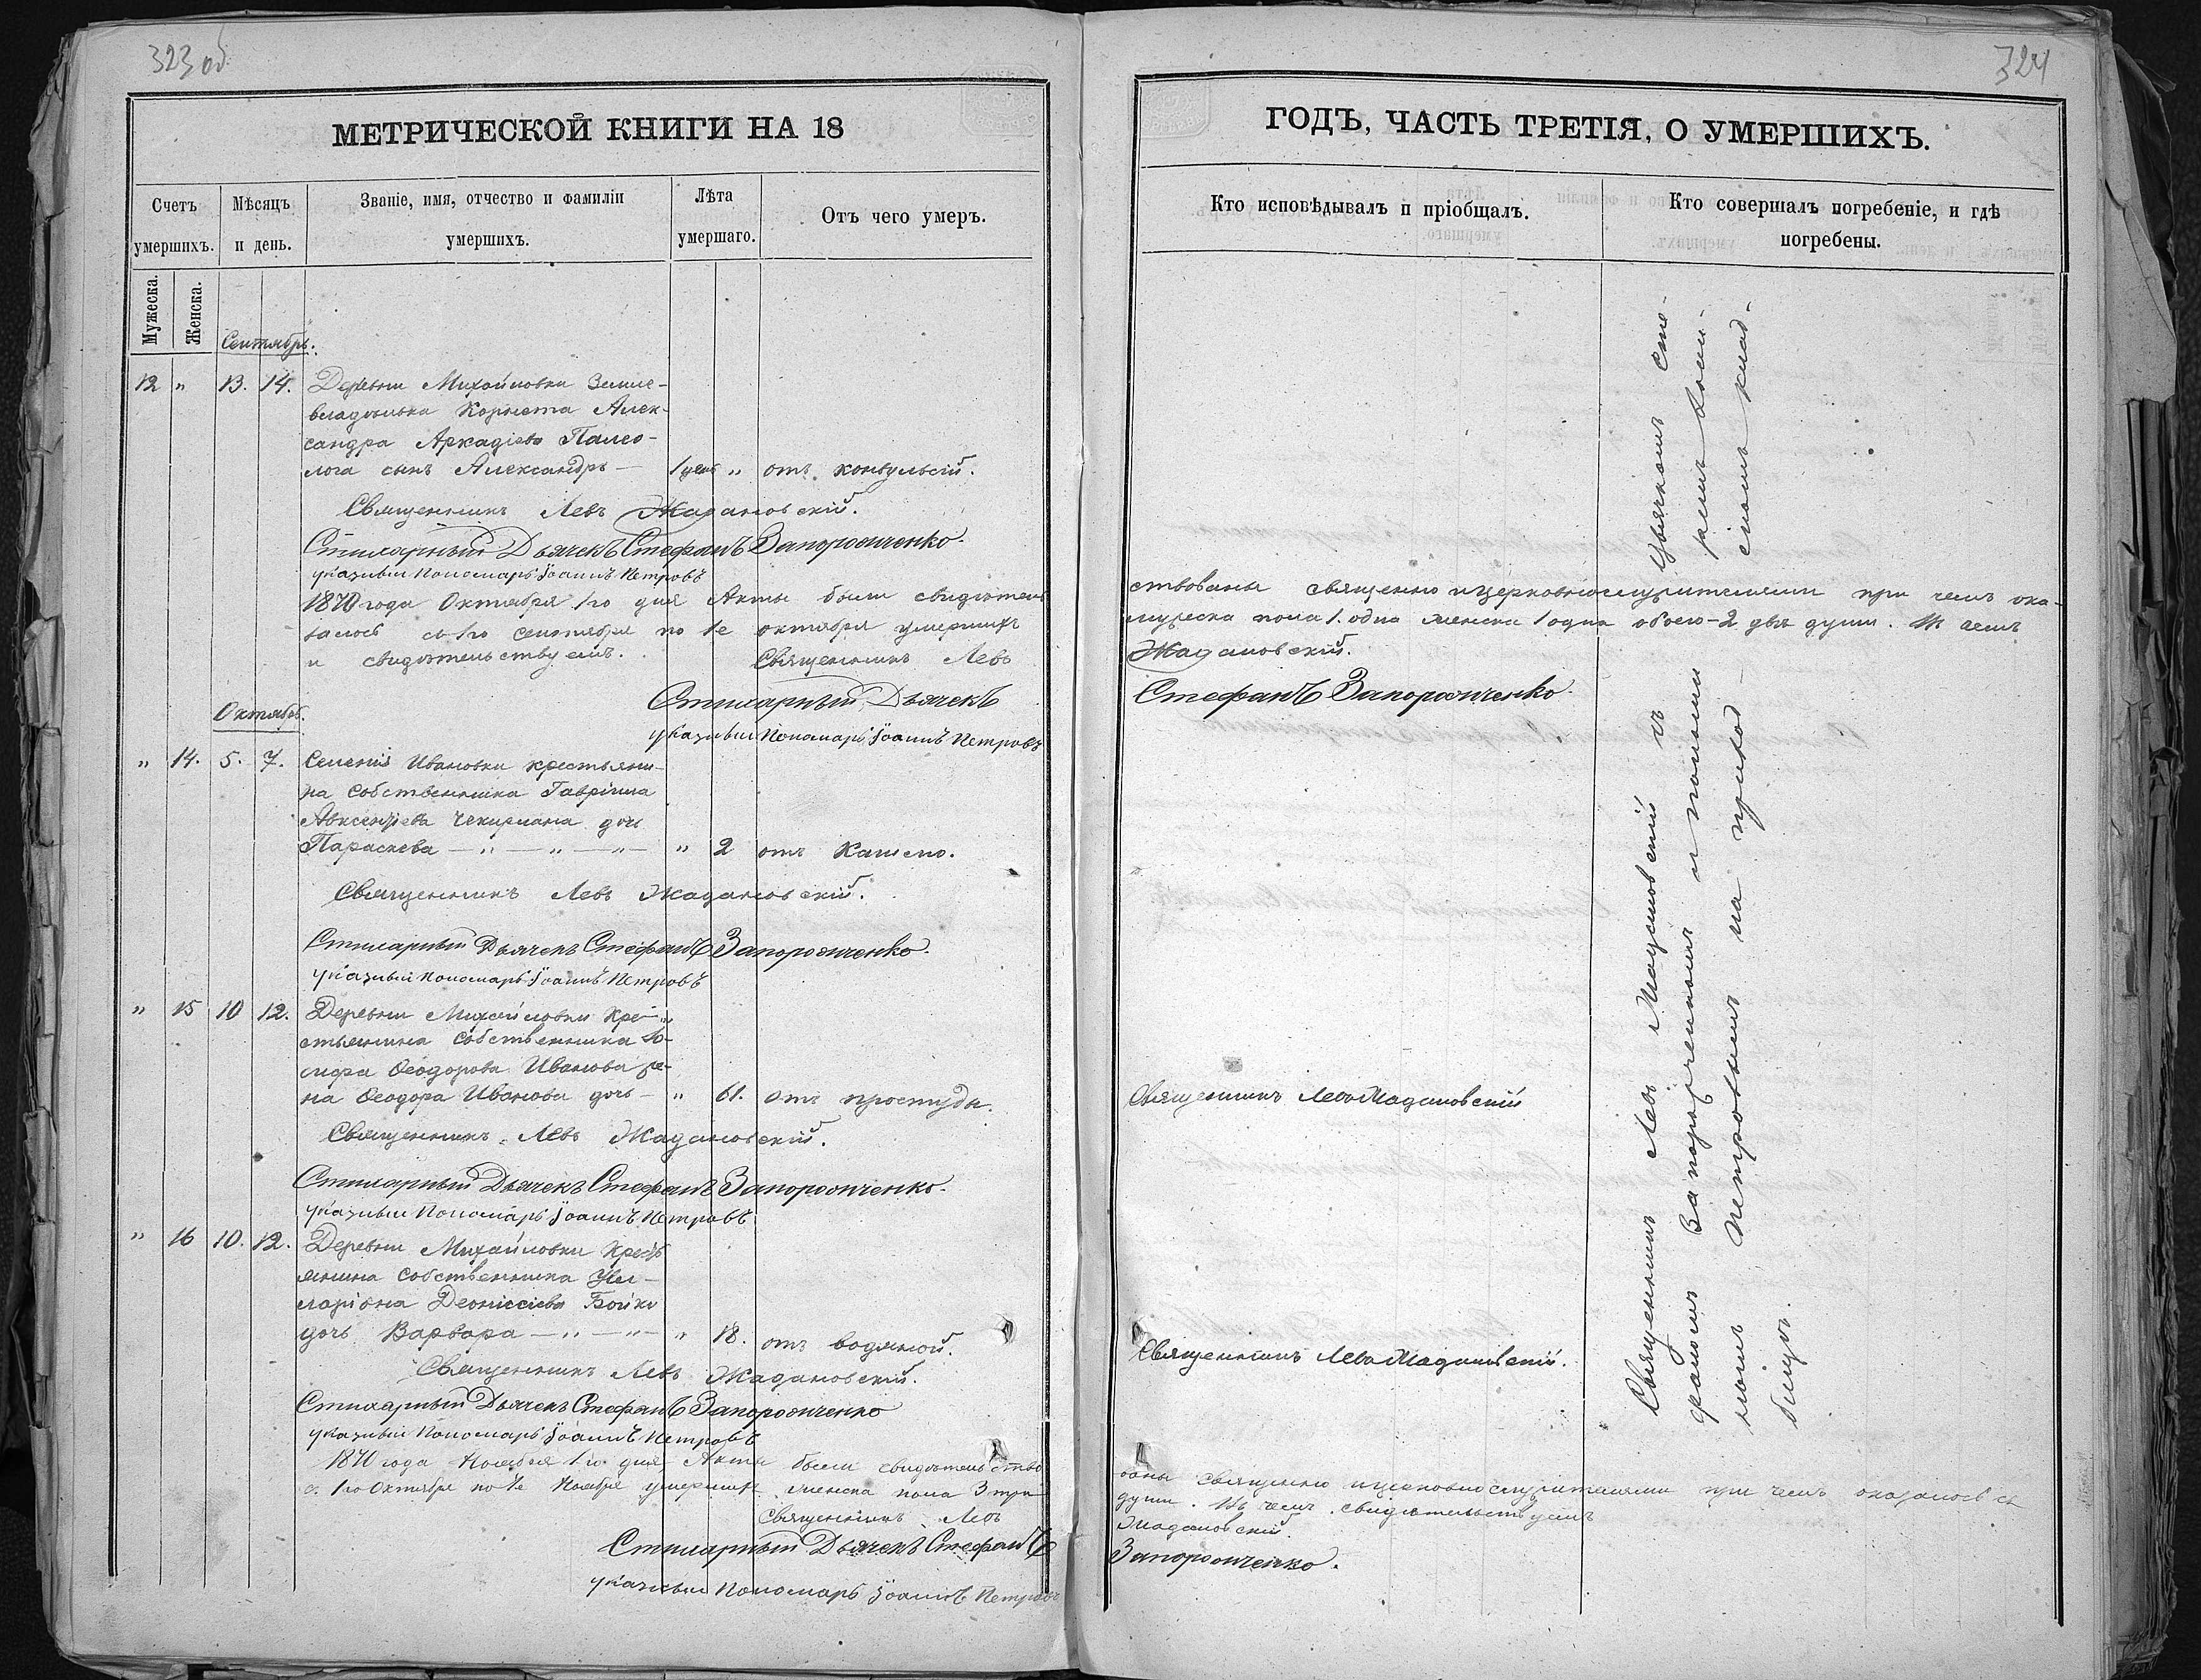 323 об.
МЕТРИЧЕСКОЙ КНИГИ НА 18
Счетъ умершихъ.
Мѣсяцъ и день.
Званіе, имя, отчество и фамиліи умершихъ.
Лѣта умершаго.
Отъ чего умеръ.
Мужеска.
Женска.
Сентябрь.
12 " 13. 14. Деревни Михайловки Земле-
владѣльца Корнета Алек-
сандра Аркадіева Палео-
лога сынъ Александръ — 1 день " отъ конвульсій.
Священникъ Левъ Жадановскій.
Стихарный Дьячекъ Стефанъ Запорожченко.
указный Пономарь Іоаннъ Петровъ
1870 года Октября 1го дня Акты были свидѣтель
залось съ 1го сентября по 1е октября умершихъ
и свидѣтельствуемъ.
Священникъ Левъ
Стихарный Дьячекъ
указный Пономарь Іоаннъ Петровъ
Октябрь.
" 14. 5. 7. Селенія Ивановки крестьяни-
на Собственника Гавріила
Авксентіева Чекирлана дочь
Параскева — " — " — " — " 2 отъ Кашлю.
Священникъ Левъ Жадановскій.
Стихарный Дьячекъ Стефанъ Запорожченко.
указный Пономарь Іоаннъ Петровъ
" 15 10 12. Деревни Михайловки Кре-
стьянина Собственника Іо-
сифа Ѳеодорова Иванова же-
на Ѳеодора Иванова дочь — " 61. отъ простуды.
Священникъ Левъ Жадановскій.
Стихарный Дьячекъ Стефанъ Запорожченко.
указный Пономарь Іоаннъ Петровъ
" 16 10. 12. Деревни Михайловки Кресть
янина Собственника
Деонисіева Бойко
дочь Варвара — " — " — " 18. отъ водяной.
Священникъ Левъ Жадановскій.
Стихарный Дьячекъ Стефанъ Запорожченко
указный Пономарь Іоаннъ Петровъ
1870 года Ноября 1го дня Акты были свидѣтельство
с. 1го Октября по 1е Ноября умершихъ женска пола 3 три
Священникъ Левъ
Стихарный Дьячекъ Стефанъ
указный Пономарь Іоаннъ Петровъ
324
ГОДЪ, ЧАСТЬ ТРЕТІЯ, О УМЕРШИХЪ.
Кто исповѣдывалъ и пріобщалъ.
Кто совершалъ погребеніе, и гдѣ погребены.
ствованы священно и церковнослужителями при чемъ ока-
мужеска пола 1. одна женска 1 одна обоего - 2 двѣ души. въ чемъ
Жадановскій.
Стефанъ Запорожченко.
Священникъ Левъ Жадановскій
Священникъ Левъ Жадановскій.
Священникъ Левъ Жадановскій съ дьячкомъ Сте-
фаномъ Запорожченкомъ и пономаремъ Іоан-
номъ Петровымъ на приход-
скомъ клад-
бищѣ.
ваны священно и церковнослужителями при чемъ оказалось съ
души. въ чемъ свидѣтельствуемъ
Жадановскій.
Запорожченко.